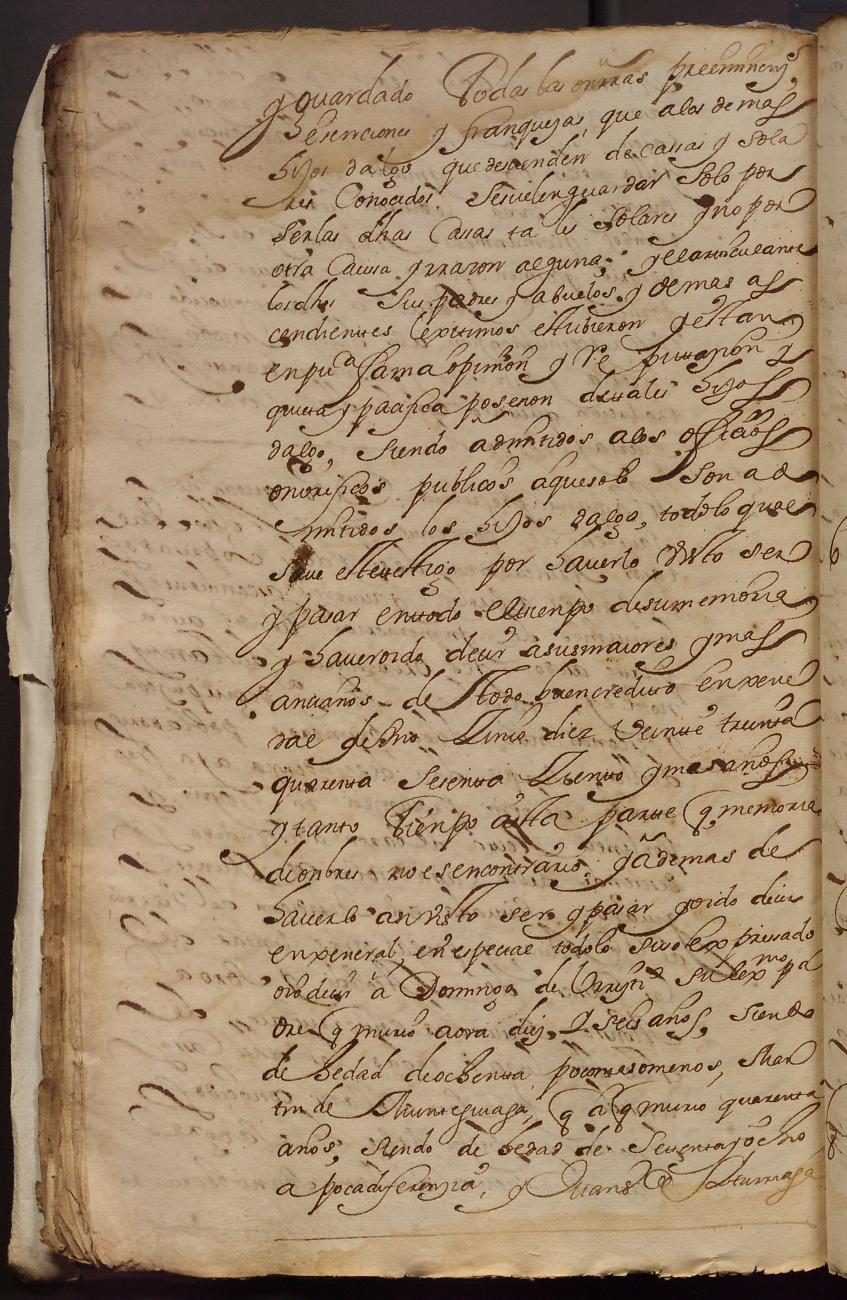 y guardado todas las onrras preeminencias
hesenciones y franquezas, que a los demas
hijos dalgo que desçienden de cassas y sola
res Conocidos. Sesuelen guardar solo por
ser las dhas Cassas tales solares y no por
otra Causa y rrazon alguna; y el articulante
los dhos sus padres y abuelos, y demas as
cendientes lexitimos estubieron y estan
en puca fama opinion y rreputazion y
quieta y pacifica posesion de tales hijos
dalgo, siendo admitidos a los ofiçios
onorificos publicos a que solo son ad
mitidos los hijos dalgo, todo lo qual
save este testigo por haverlo visto ser
y pasar en todo el tienpo de su memoria
y haver oido deçir a sus maiores y mas
ançianos de todo buen credito en xene
ral y de Uno Cinco diez Veinte treinta
quarenta Sesenta Ciento y mas años
y tanto tienpo a esta parte q memoria
de onbres no es en contrario. y ademas de
haverlo asi visto ser y pasar y oido deçir
en xeneral, en espeçial todo lo suso expressado
oio deçir a Domingo de su lexmo pa
dre q murio aora diez y seis años, siendo
de hedad de ochenta poco mas o menos, Mar
tin de q a q murio quarenta
años, siendo de hedad de setenta y ocho
a poca diferenzia, y Juans de Yturriaga